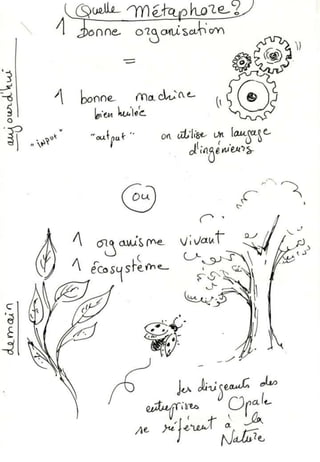 Quelle Métaphore ?
1 bonne organisation
=
1 bonne machine
bien huilée
"input" "output" on utilise un langage
d'ingénieurs
aujourd'hui
ou
1 organisme vivant
1 écosystème
demain
les dirigeants des
entreprises Opale
se réfèrent à la
Nature